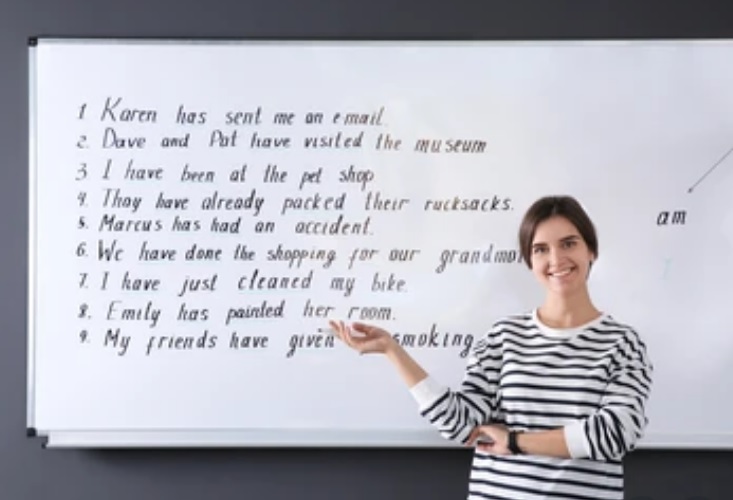 1 Karen has sent me an email.
2. Dave and Pat have visited the museum
3 I have been at the pet shop
4. Thay have already packed their rucksacks.
5. Marcus has had an accident.
6. We have done the shopping for our grandmo
7. I have just cleaned my bike.
8. Emily has painted her room.
9. My friends have given smoking
am